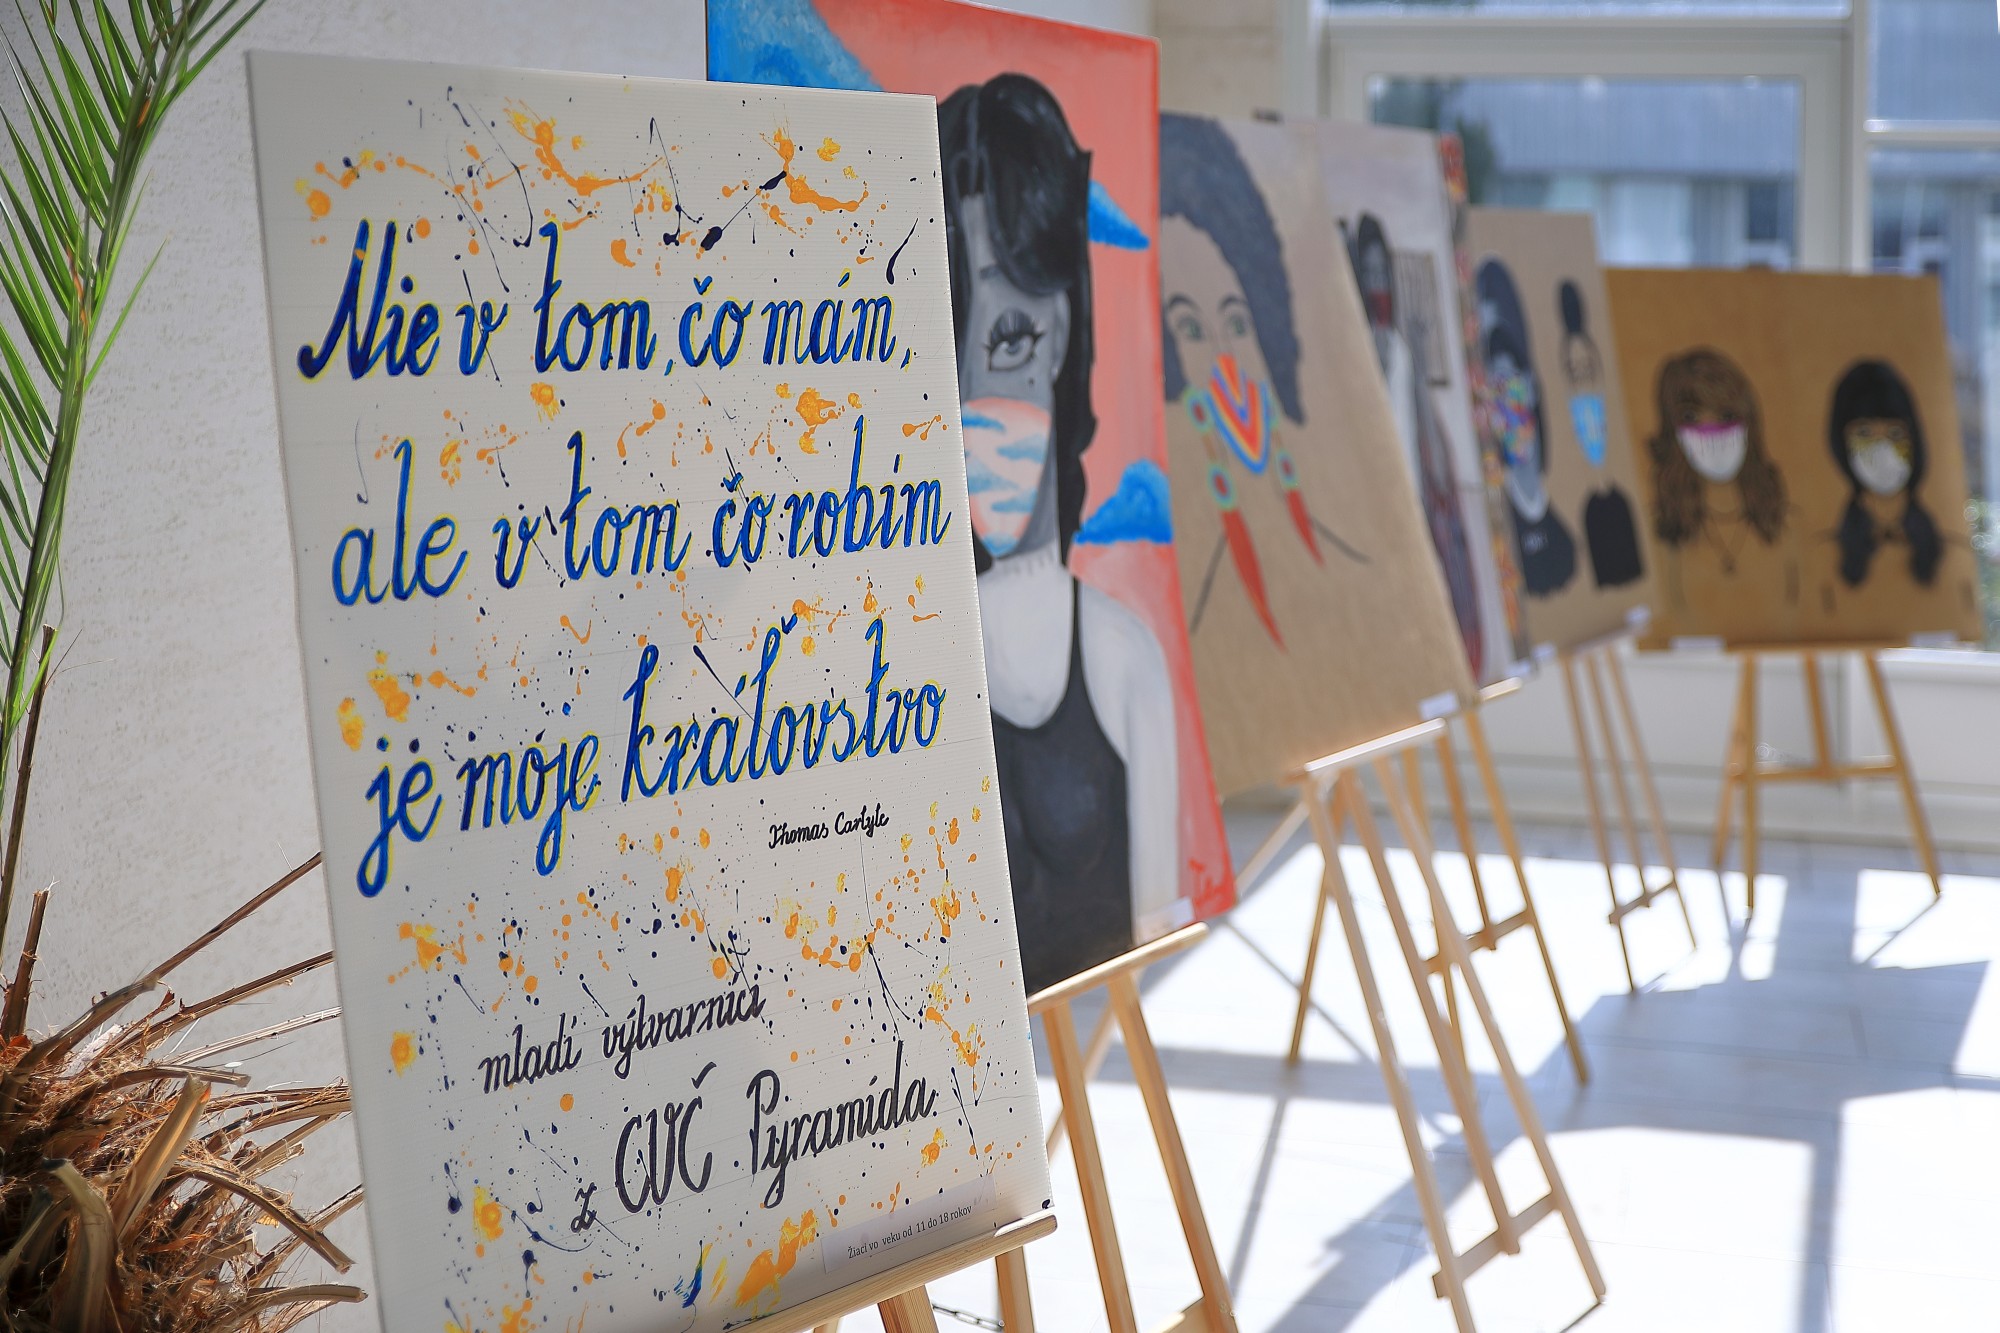 Nie v tom, čo mám,
ale v tom čo robím
je moje kráľovstvo
Thomas Carlyle
mladí výtvarníci
z CVČ Pyramída
Žiaci vo veku od 11 do 18 rokov